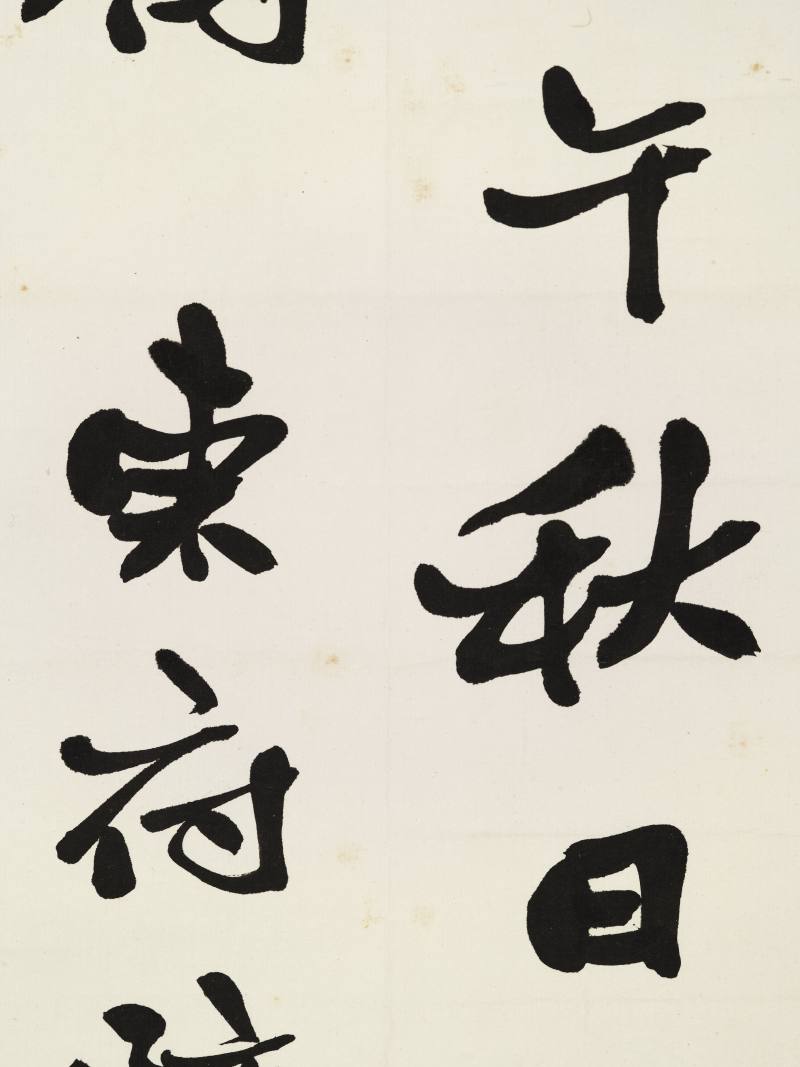 午秋日
東府